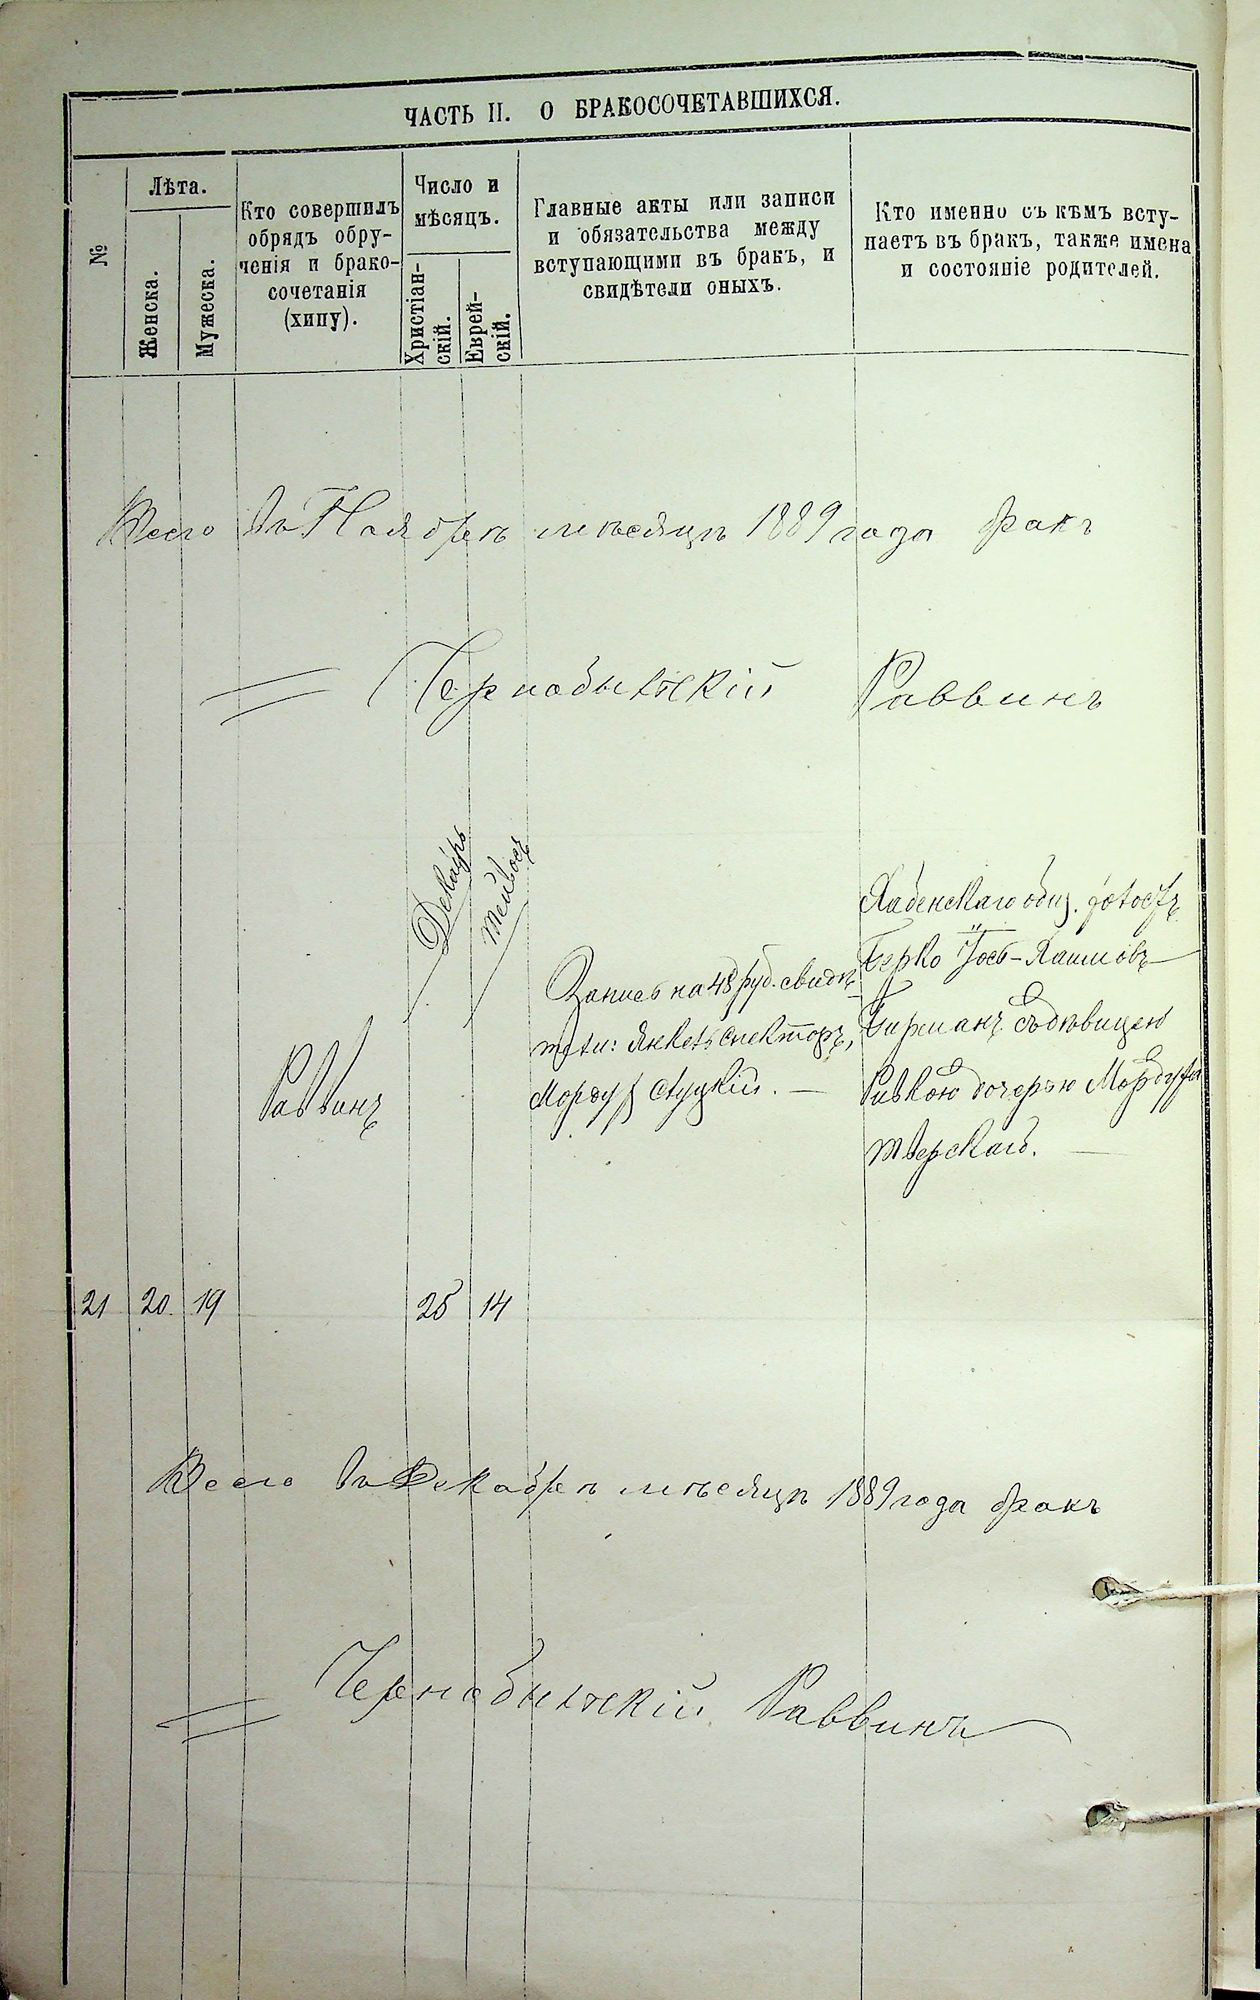 ЧАСТЬ II. О БРАКОСОЧЕТАВШИХСЯ.
№
Лѣта.
Женска.
Мужеска.
Кто совершилъ
обрядъ обру-
ченія и брако-
сочетанія
(хипу).
Число и
мѣсяцъ.
Христіан-
скій.
Еврей-
скій.
Главные акты или записи
и обязательства между
вступающими въ бракъ, и
свидѣтели оныхъ.
Кто именно съ кѣмъ всту-
паетъ въ бракъ, также имена
и состояніе родителей.
Всего въ Ноябрѣ мѣсяцѣ 1889 года бракъ
Чернобыльскій Раввинъ
Раввинъ
Декабрь
тейвес
Запись на 48 руб. свидѣ-
тели: Янкель Спекторъ,
Мордух Слуцкій.
Хабенскаго общ. холостъ
Берко Іось-Хаимовъ
Бирманъ съ дѣвицею
Ривкою дочерью Мордуха
Тверскаго.
21 20 19 25 14
Всего въ Декабрѣ мѣсяцѣ 1889 года бракъ
Чернобыльскій Раввинъ